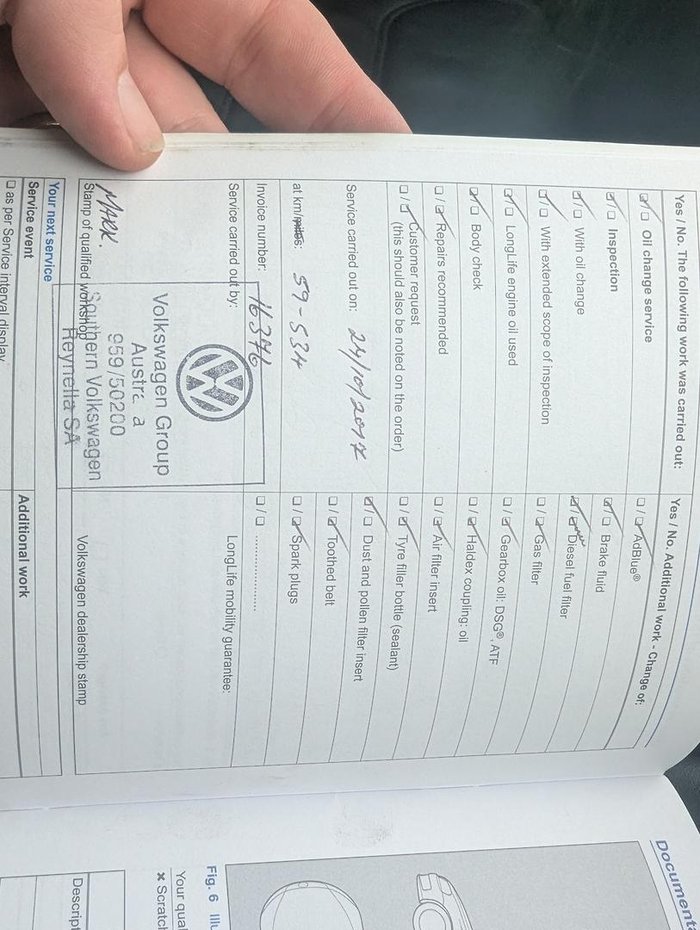 Yes / No. The following work was carried out:
☑/☐ Oil change service
☑/☐ Inspection
☑/☐ With oil change
☑/☐ With extended scope of inspection
☑/☐ LongLife engine oil used
☑/☐ Body check
☐/☑ Repairs recommended
☐/☑ Customer request
(this should also be noted on the order)
Service carried out on: 24/10/2017
at km/miles: 59-534
Invoice number: 16346
Service carried out by:
VW
Volkswagen Group
Austra a
959/50200
Southern Volkswagen
Reynella SA
MARK.
Stamp of qualified workshop
Yes / No. Additional work - Change of:
☐/☑ AdBlue®
☑/☐ Brake fluid
☑/☐ Diesel fuel filter
☐/☑ Gas filter
☐/☑ Gearbox oil: DSG®, ATF
☐/☑ Haldex coupling: oil
☐/☑ Air filter insert
☐/☑ Tyre filler bottle (sealant)
☑/☐ Dust and pollen filter insert
☐/☑ Toothed belt
☐/☑ Spark plugs
☐/☐ ....................
LongLife mobility guarantee:
Volkswagen dealership stamp
Your next service
Service event
Additional work
☐ as per Service interval display
Document
Fig. 6 Illu
Your qual
× Scratch
Descript